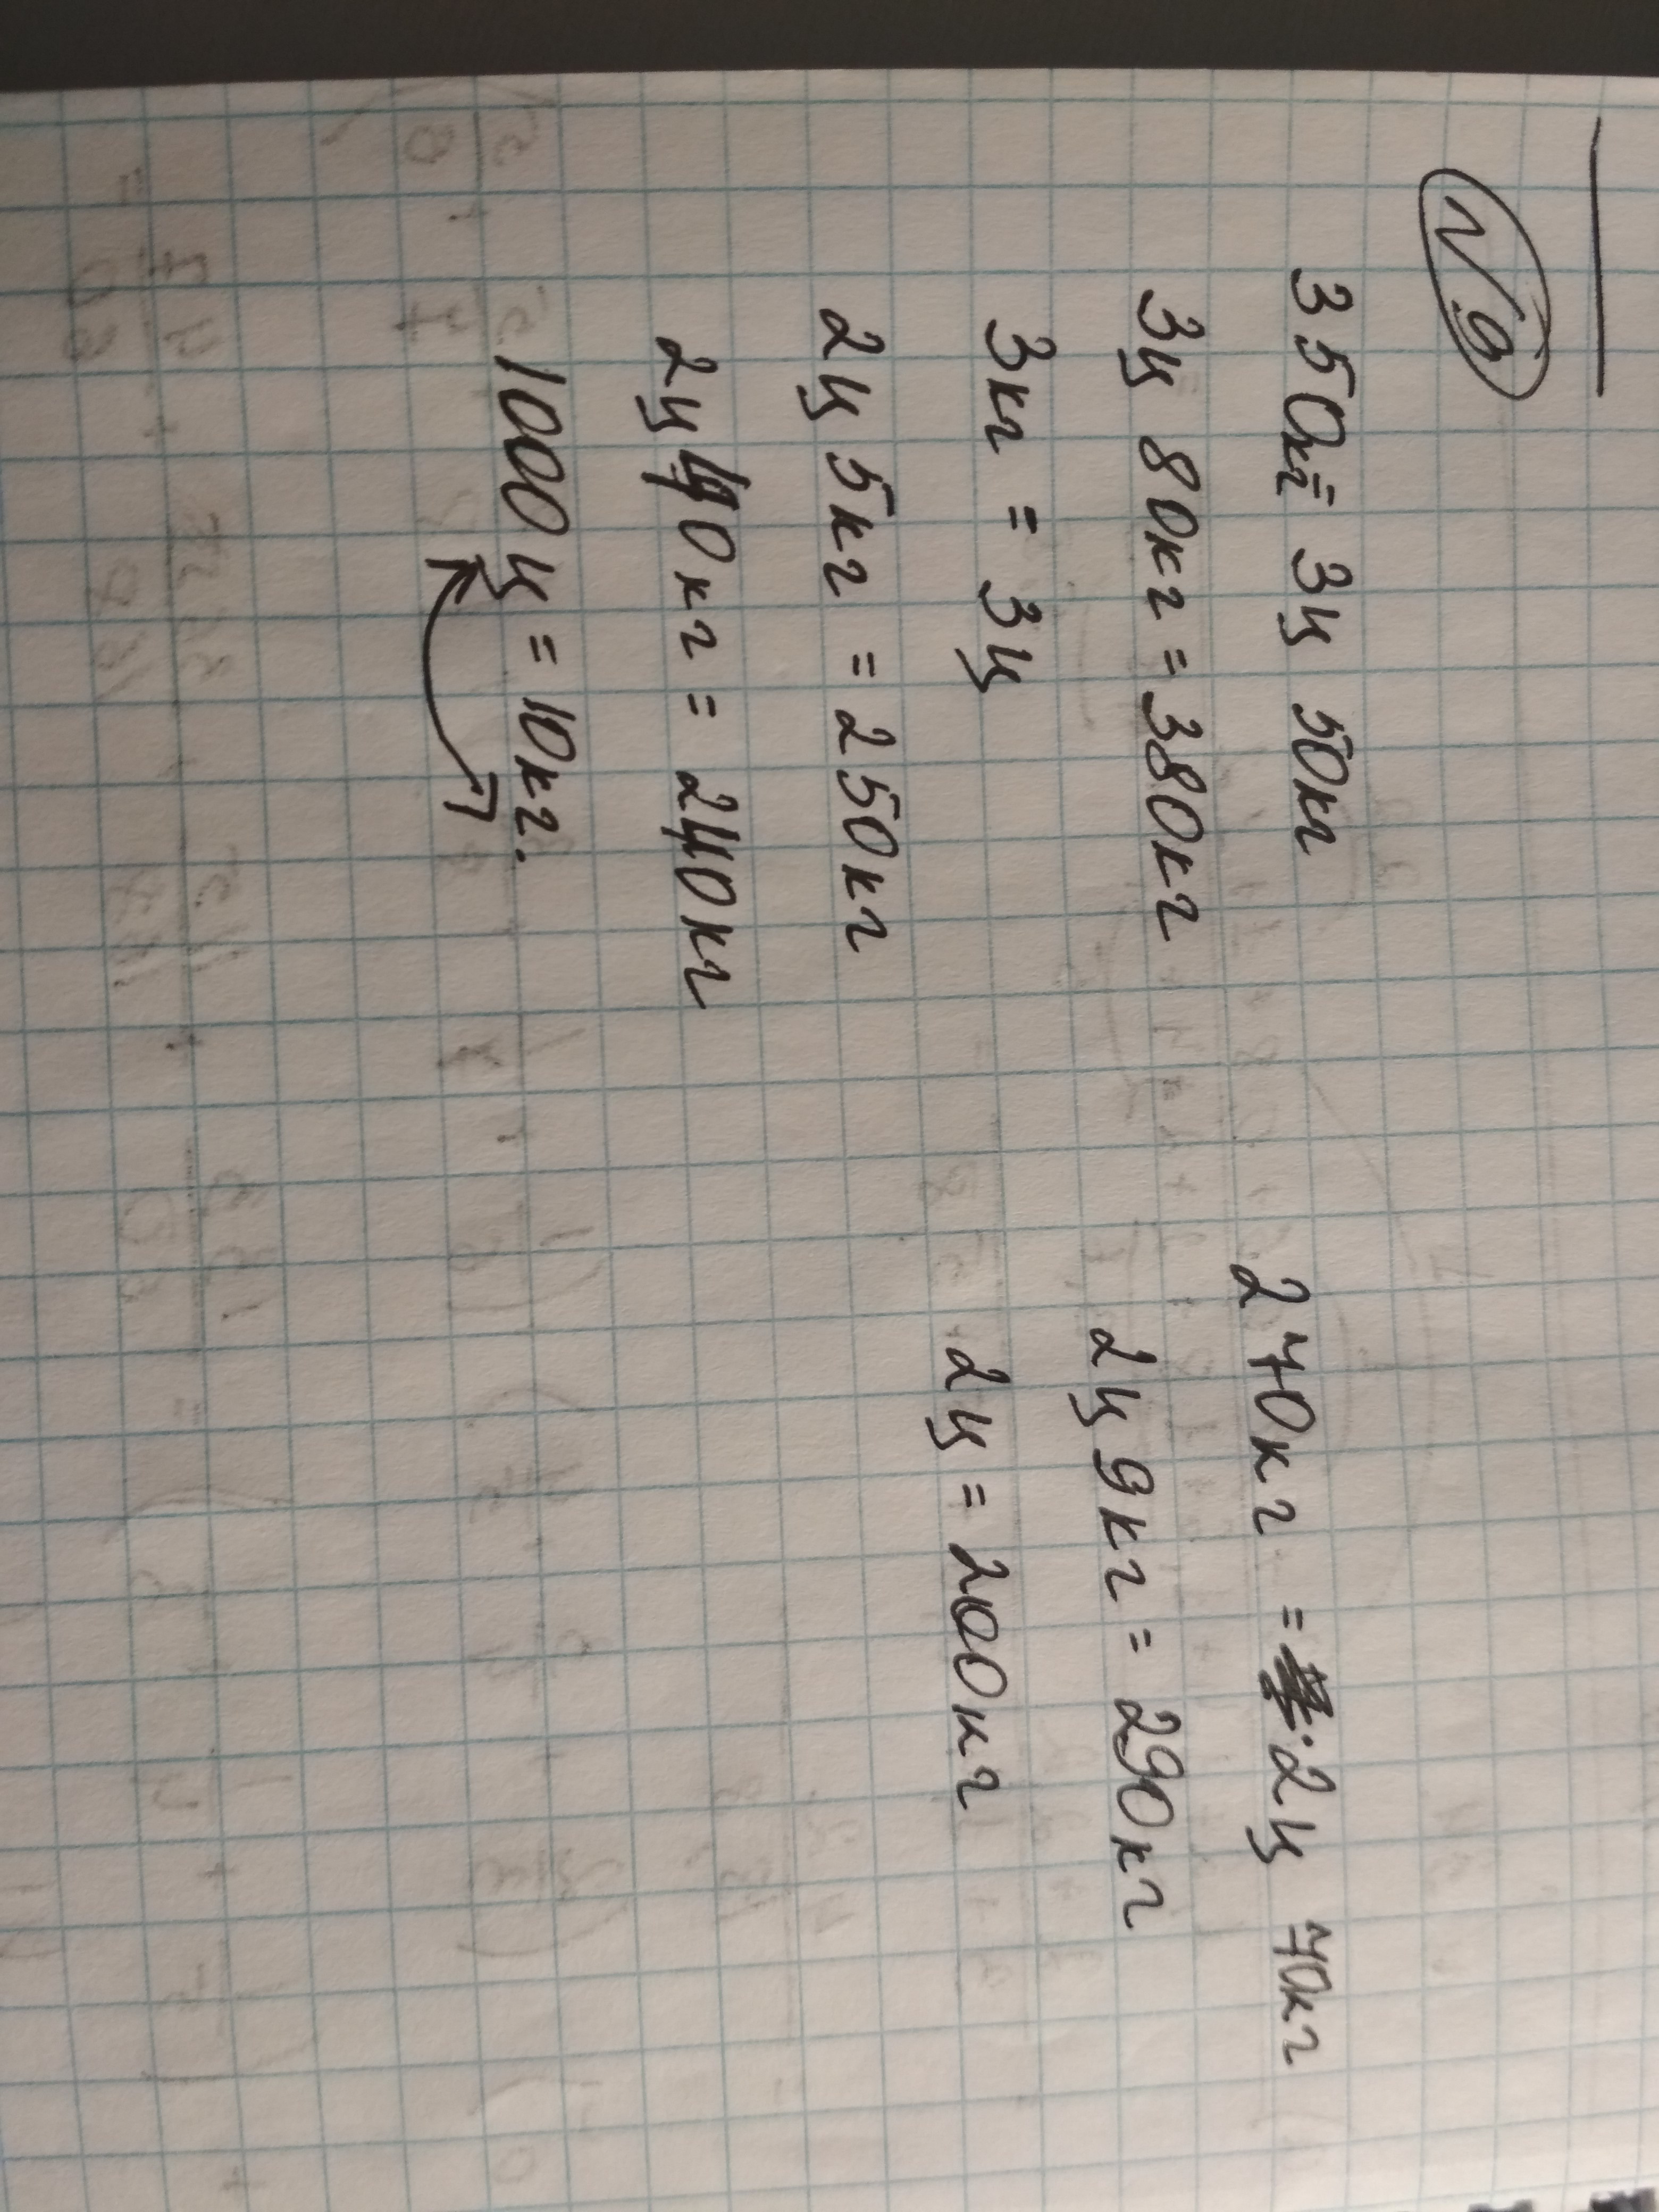 №9
350кг = 3ц 50кг
3ц 80кг = 380кг
3кг = 3ц
2ц 5кг = 250кг
2ц 40кг = 240кг
1000ц = 10кг.
270кг = 2ц 70кг
2ц 9кг = 290кг
2ц = 200кг